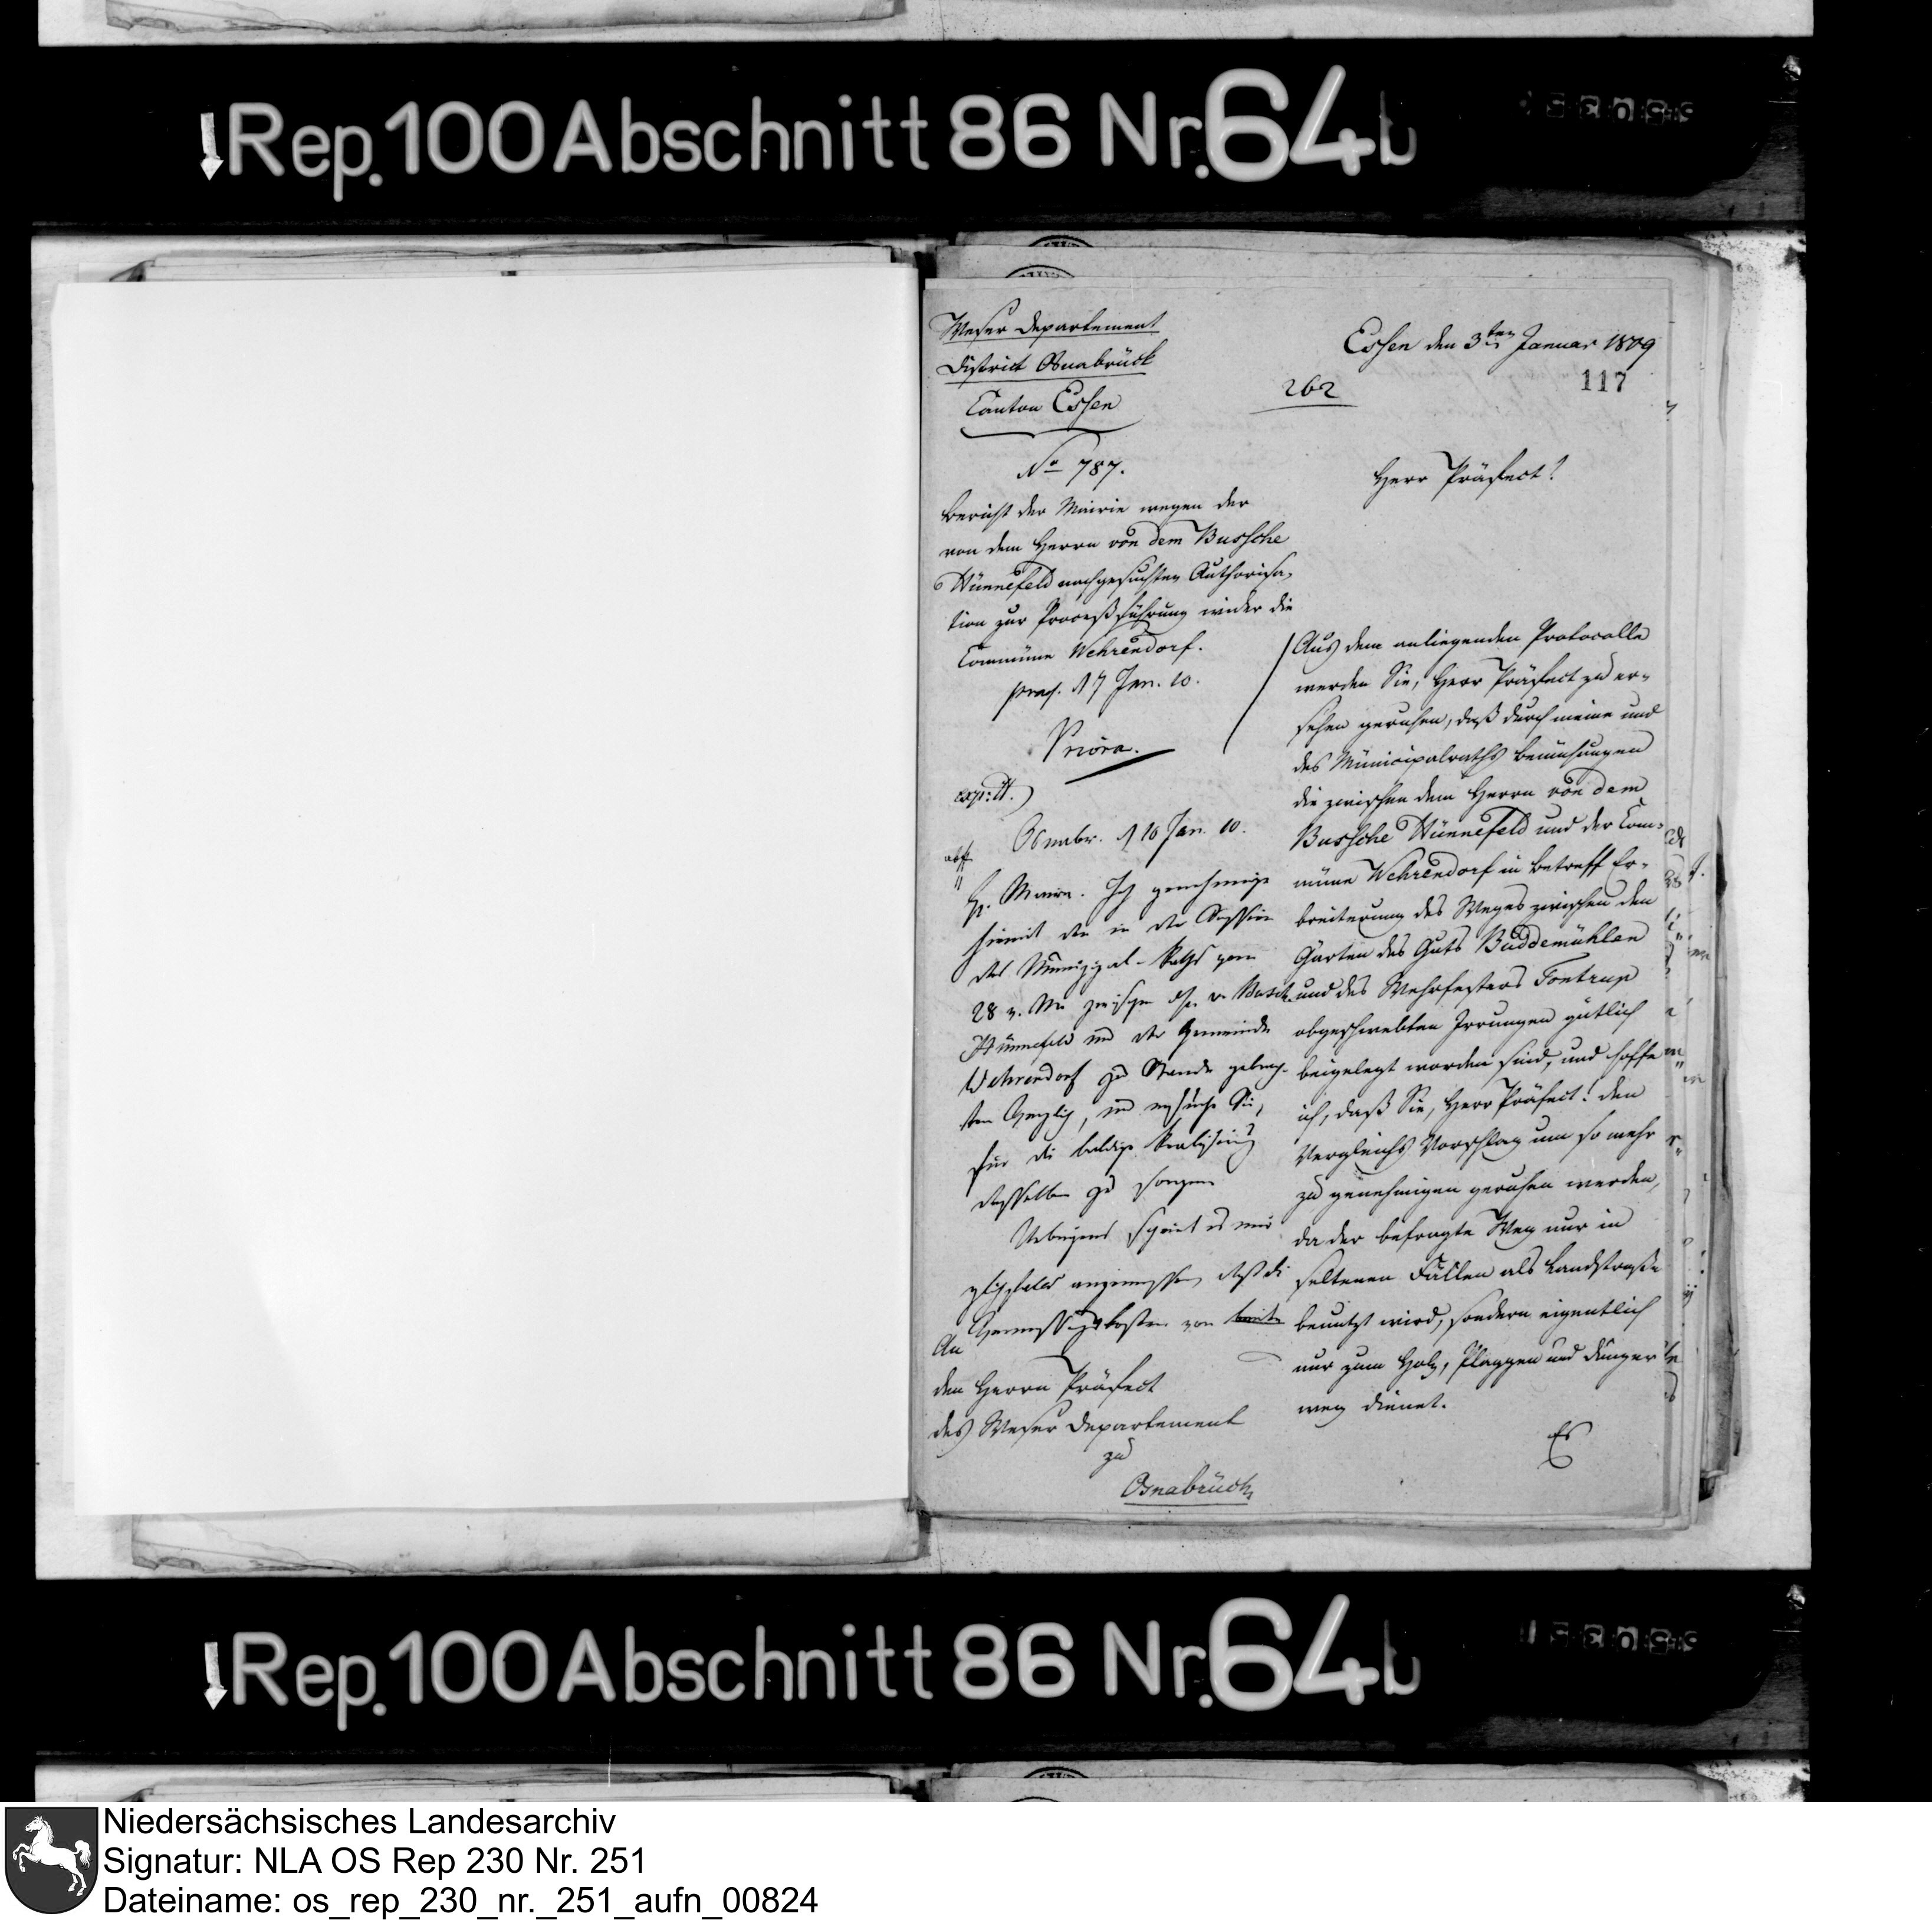 Rep. 100 Abschnitt 86 Nr. 64b
Weser Departement
District Osnabrück
Canton Essen
Essen den 3ten Januar 1809
262
117
No 787.
Bericht der Mairie wegen der
von dem Herrn von dem Bussche
Hünnefeld nachgesuchten Authorisa-
tion zur Proceßführung wider die
Commüne Wehrendorf.
praes. d 7 Jan. 10.
Priora.
exp: dt.
Osnabr. d 10 Jan. 10.
H. Maire. Ich genehmige
hiemit den in der Session
des Munizipal-Raths vom
28 v. Mts zwischen H. v. Busche
Hünnefeld und der Gemeinde
Wehrendorf zu Stande gebrach-
ten Vergleich, und ersuche Sie,
für die baldige Realisirung
desselben zu sorgen.
Uebrigens scheint es mir
angemessen, daß die
von
An
den Herrn Präfect
des Weser Departement
zu
Osnabrück
Herr Präfect!
Aus dem anliegenden Protocolle
werden Sie, Herr Präfect zu er-
sehen geruhen, daß durch meine und
des Municipalraths Bemühungen
die zwischen dem Herrn von dem
Bussche Hünnefeld und der Com-
müne Wehrendorf in Betreff Er-
breiterung des Weges zwischen den
Gärten des Guts Buddemühlen
und des Wehrfesters Fontrup
obgeschwebten Irrungen gütlich
beigelegt worden sind, und hoffe
ich, daß Sie, Herr Präfect! den
Vergleichs Vorschlag um so mehr
zu genehmigen geruhen werden,
da der befragte Weg nur in
seltenen Fällen als Landstraße
benutzt wird, sondern eigentlich
nur zum Holz, Plaggen und Dünger
weg dienet.
Es
Rep. 100 Abschnitt 86 Nr. 64b
Niedersächsisches Landesarchiv
Signatur: NLA OS Rep 230 Nr. 251
Dateiname: os_rep_230_nr._251_aufn_00824